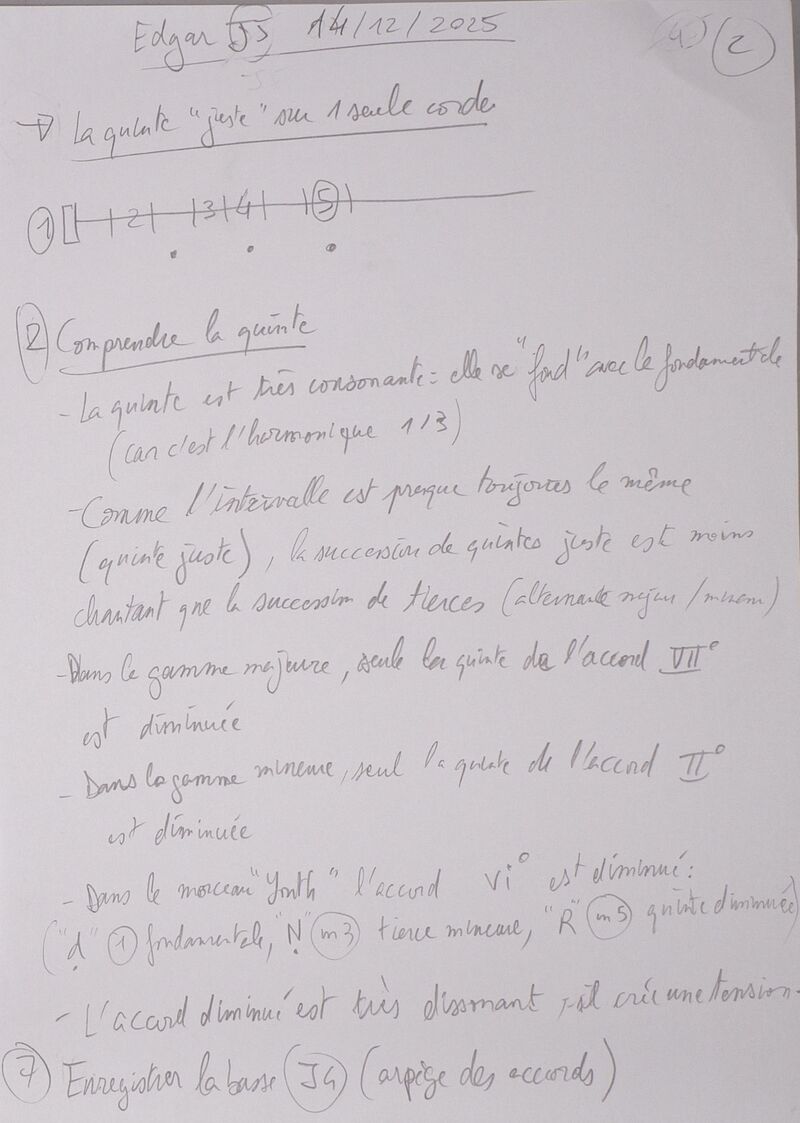 Edgar J5 14/12/2025
2
→ La quinte "juste" sur 1 seule corde
1 2 3 4 5
2 Comprendre la quinte
- La quinte est très consonante : elle se "fond" avec le fondamentale
(car c'est l'harmonique 1/3)
- Comme l'intervalle est presque toujours le même
(quinte juste), la succession de quintes juste est moins
chantant que la succession de tierces (alternante majeur / mineur)
- Dans le gamme majeure, seule la quinte de l'accord VII°
est diminuée
- Dans la gamme mineure, seul la quinte de l'accord II°
est diminuée
- Dans le morceau "Youth" l'accord vi° est diminué :
("d" 1 fondamentale, "N" m3 tierce mineure, "R" m5 quinte diminuée)
- L'accord diminué est très dissonant, il crée une tension.
7 Enregistrer la basse J4 (arpège des accords)